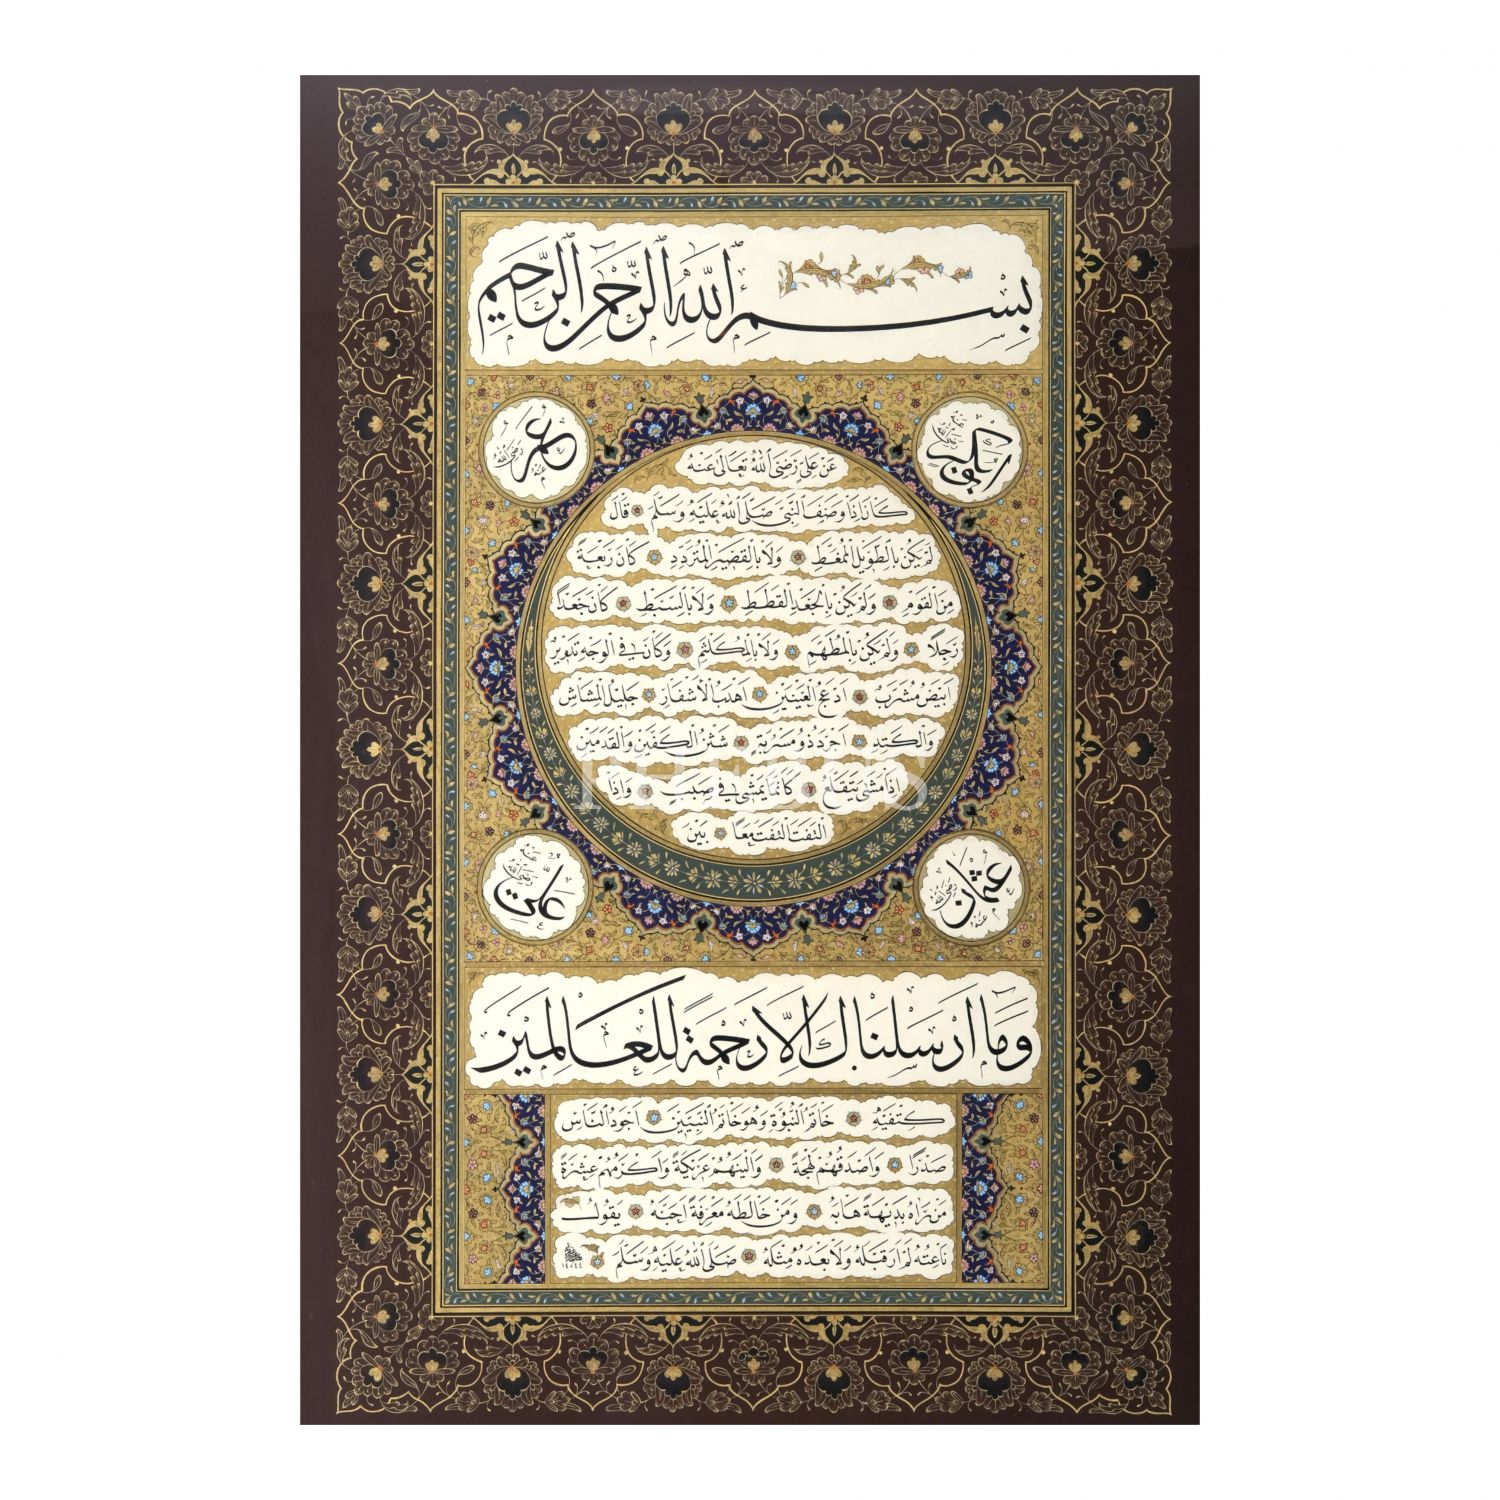 بِسْمِ اللّٰهِ الرَّحْمٰنِ الرَّحِيمِ
ابوبكر رضى الله عنه
عمر رضى الله عنه
عن على رضى الله تعالى عنه
كان اذا وصف النبى صلى الله عليه وسلم قال
لم يكن بالطويل الممغط ولا بالقصير المتردد كان ربعة
من القوم ولم يكن بالجعد القطط ولا بالسبط كان جعدا
رجلا ولم يكن بالمطهم ولا بالمكلثم وكان فى الوجه تدوير
ابيض مشرب ادعج العينين اهدب الاشفار جليل المشاش
والكتد اجرد ذو مسربة شثن الكفين والقدمين
اذا مشى يتقلع كانما يمشى فى صبب واذا
التفت التفت معا بين
عثمان رضى الله عنه
على رضى الله عنه
وما ارسلناك الا رحمة للعالمين
كتفيه خاتم النبوة وهو خاتم النبيين اجود الناس
صدرا واصدقهم لهجة والينهم عريكة واكرمهم عشرة
من راه بديهة هابه ومن خالطه معرفة احبه يقول
ناعته لم ار قبله ولا بعده مثله صلى الله عليه وسلم
١٤٠٤٤